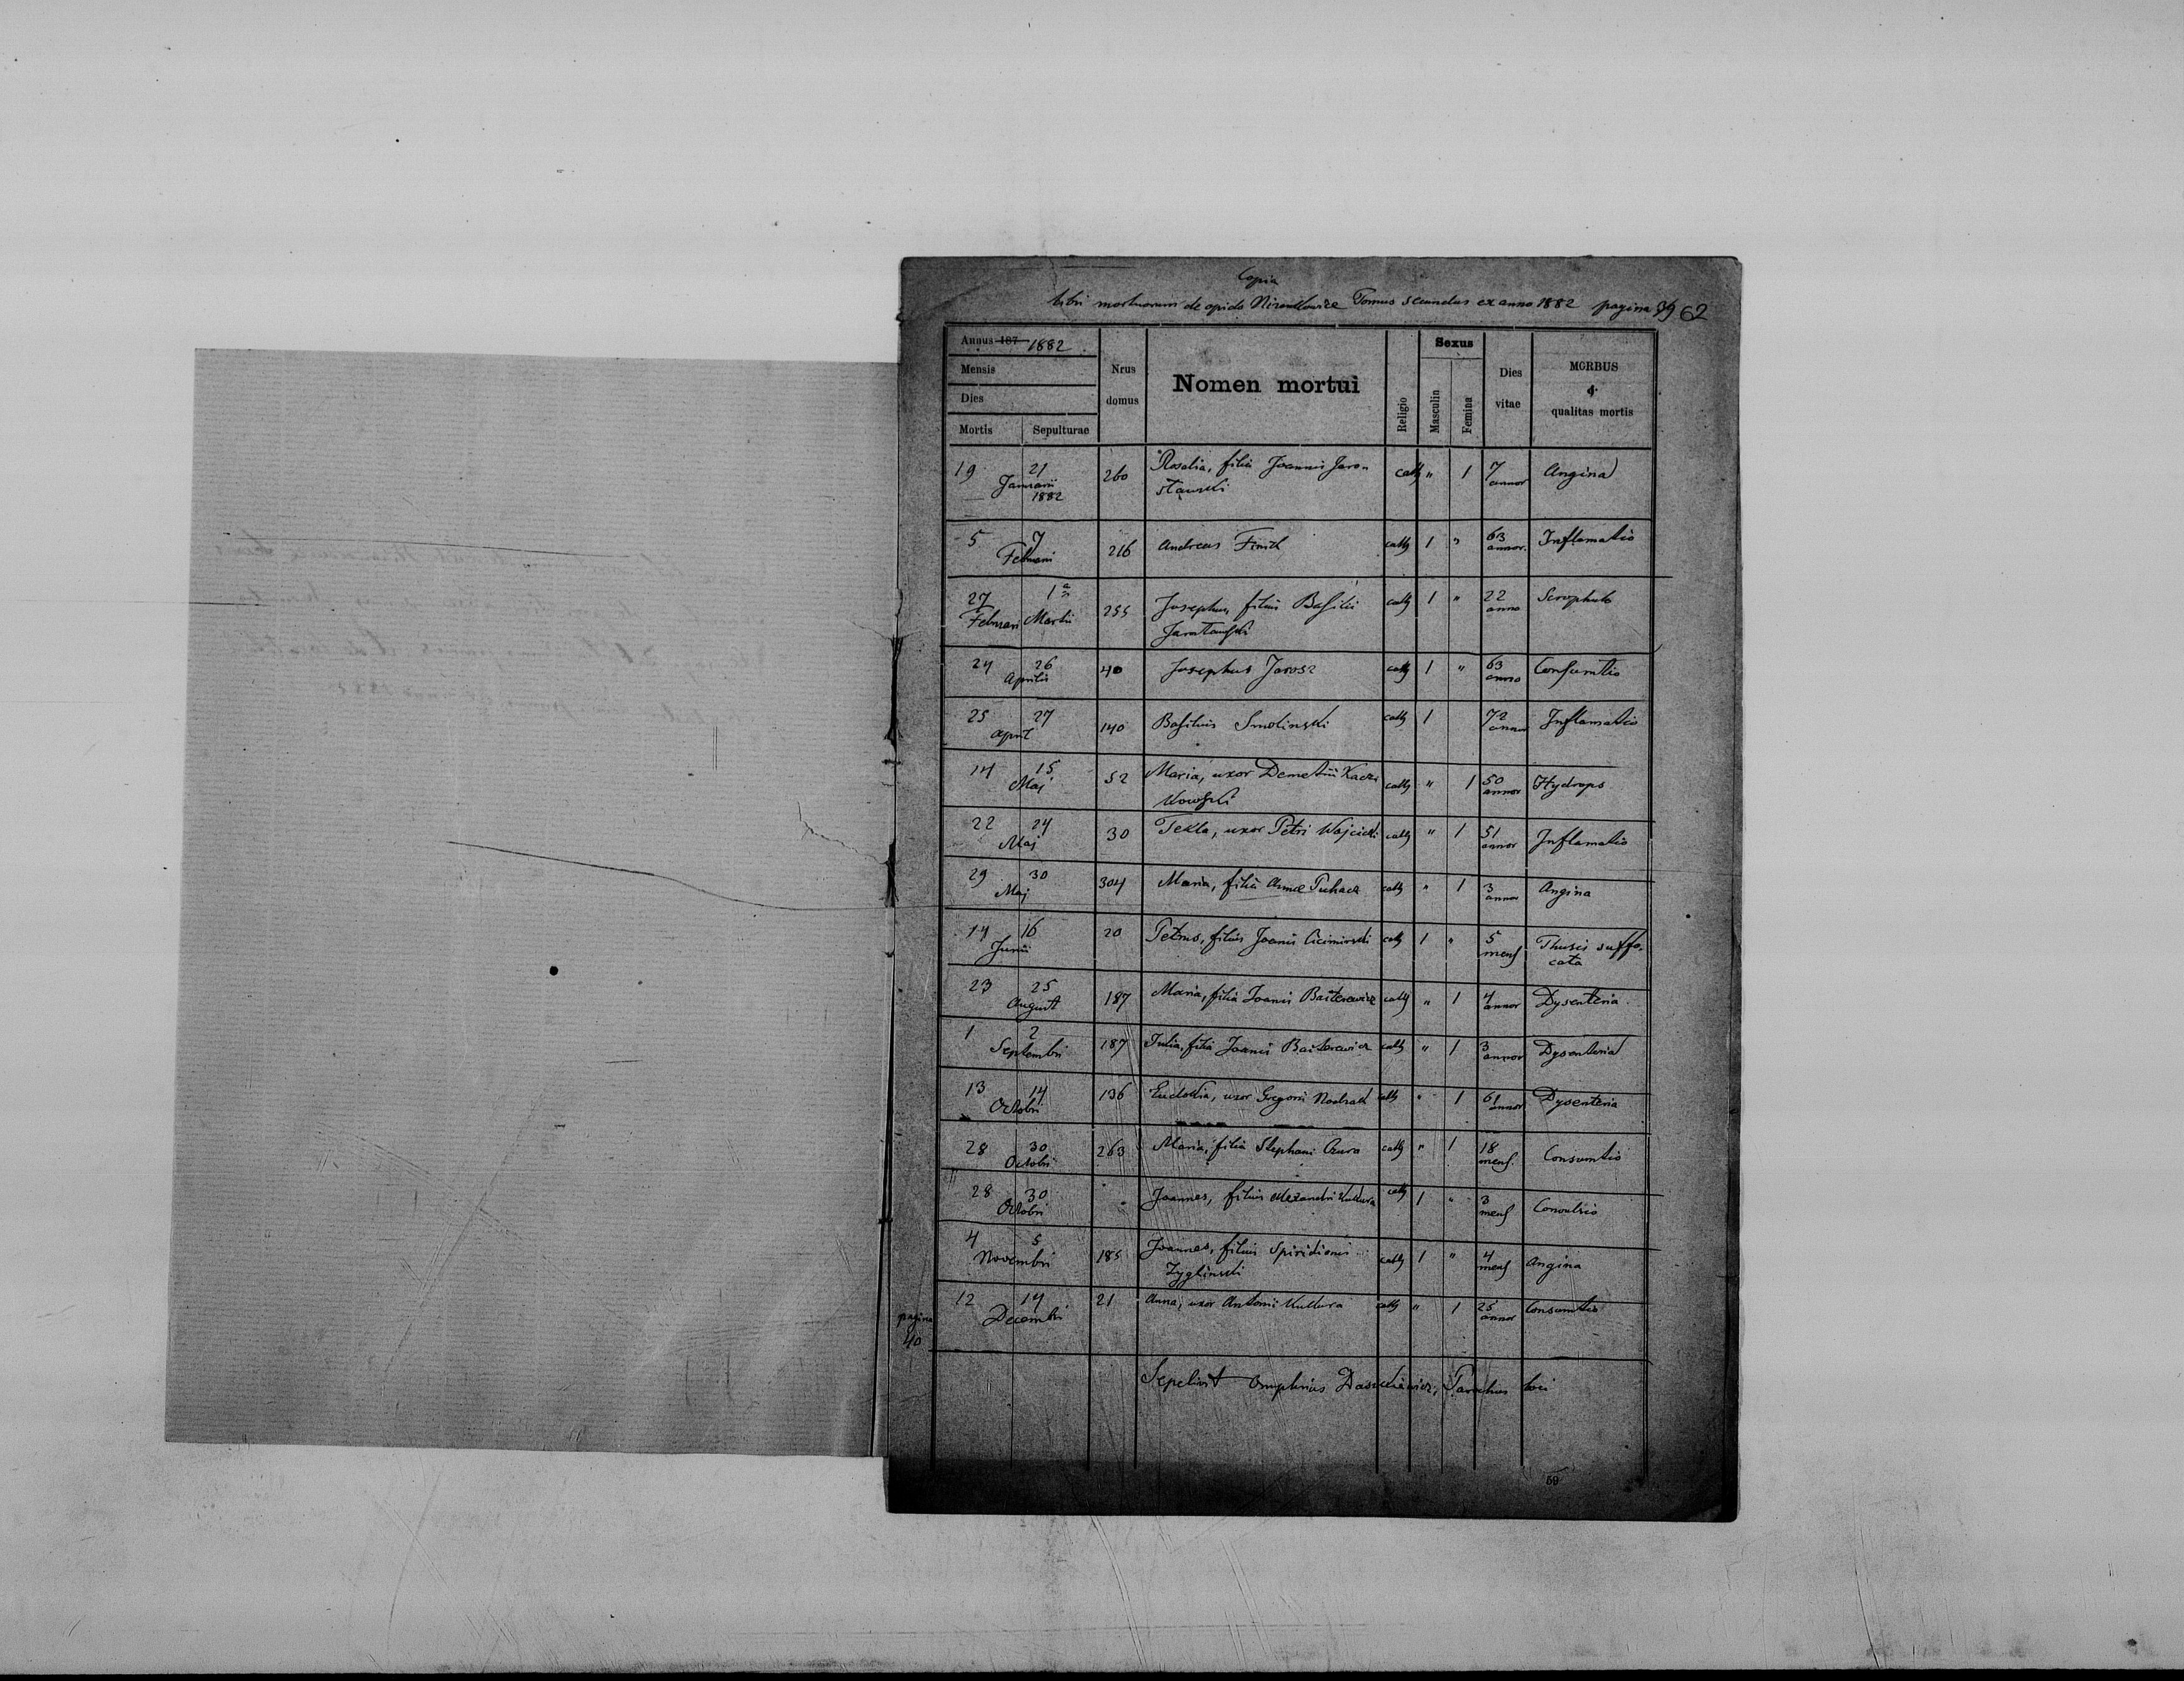 Copia
libri mortuorum de opido Niżankowice Tomus secundus ex anno 1882 pagina 39 62
Annus 187 1882
Mensis
Dies
Mortis Sepulturae
Nrus domus
Nomen mortui
Religio
Sexus
Masculin
Femina
Dies vitae
MORBUS
&
qualitas mortis
19 21 260 Rosalia, filia Joannis Jaro- cath " 1 7 Angina
Januarii sławski annor
1882
5 7 216 Andreas cath 1 " 63 Inflamatio
Februari annor.
27 1 255 Josephus, filius Basilii cath 1 " 22 Scrophulo
Februari Martii anno
24 26 40 Josephus Jarosz cath 1 " 63 Consumtio
Aprilis anno
25 27 140 Basilius Smolinski cath 1 72 Inflamatio
April annor
14 15 52 Maria, uxor Demetrii Kacz- cath " 1 50 Hydrops
Maj kowski annor
22 24 30 Tekla, uxor Petri Wojcicki cath " 1 51 Inflamatio
Maj annor
29 30 304 Maria, filia Annae Puhacz cath " 1 3 Angina
Maj annor
14 16 20 Petrus, filius Joanis cath 1 " 5 Thusis suffo-
Junii mens cata
23 25 187 Maria, filia Joanis cath " 1 4 Dysenteria
August annor
1 2 187 Julia, filia Joanis cath " 1 3 Dysenteria
Septembri annor
13 14 136 Eudokia, uxor Gregorii cath " 1 61 Dysenteria
Octobri annor
28 30 263 Maria, filia Stephani cath " 1 18 Consumtio
Octobri mens.
28 30 " Joannes, filius Alexandri Kultura cath 1 " 3 Convulsio
Octobri mens
4 5 185 Joannes, filius Spiridionis cath 1 " 4 Angina
Novembri Zyglinski mens
12 14 21 Anna, uxor Antonii Kultura cath " 1 25 Consumtio
Decembri annor
pagina
40
Sepelivit Omphrius Daszkiewicz, Parochus loci
59